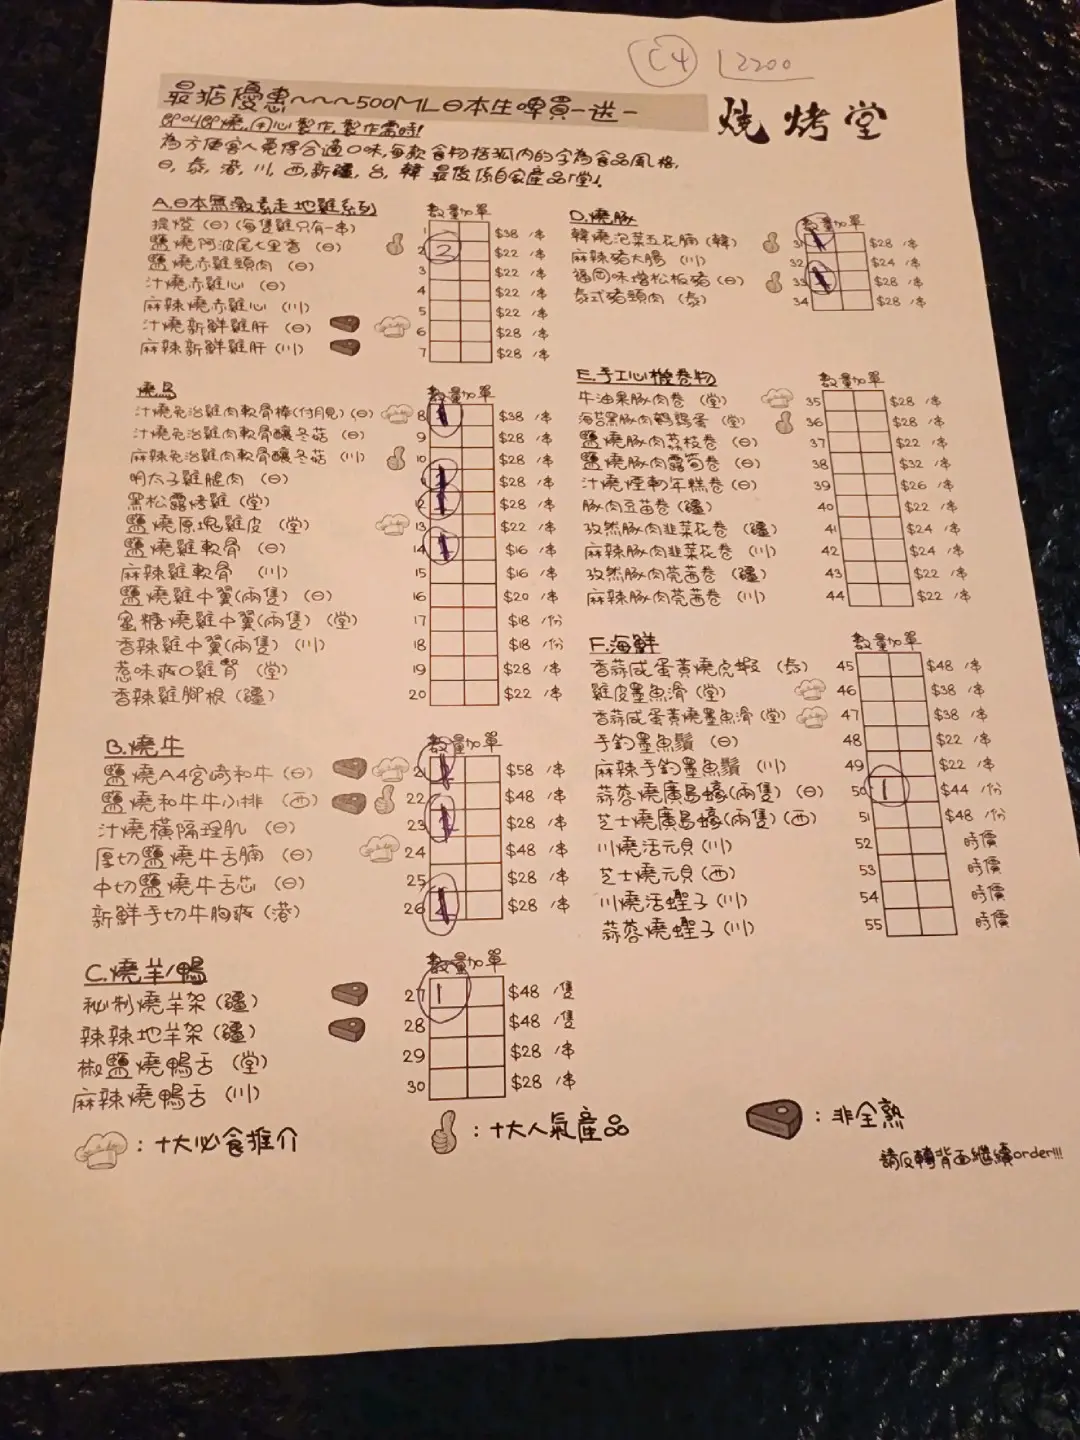 C4 12200
最抵優惠~~~500ML日本生啤買一送一
燒烤堂
即叫即燒,用心製作,製作需時!
為方便客人覓得合適口味,每款食物括弧內的字為食品風格,
日,泰,港,川,西,新疆,台,韓 最後係自家產品「堂」.
A.日本無激素走地雞系列 數量加單
提燈(日)(每隻雞只有一串) 1 $38 /串
鹽燒阿波尾七里香(日) 2 2 $22 /串
鹽燒赤雞頸肉(日) 3 $22 /串
汁燒赤雞心(日) 4 $22 /串
麻辣燒赤雞心(川) 5 $22 /串
汁燒新鮮雞肝(日) 6 $28 /串
麻辣新鮮雞肝(川) 7 $28 /串
燒鳥 數量加單
汁燒免治雞肉軟骨棒(付月見)(日) 8 1 $38 /串
汁燒免治雞肉軟骨釀冬菇(日) 9 $28 /串
麻辣免治雞肉軟骨釀冬菇(川) 10 $28 /串
明太子雞腿肉(日) 1 $28 /串
黑松露烤雞(堂) 1 $28 /串
鹽燒原塊雞皮(堂) 13 $22 /串
鹽燒雞軟骨(日) 14 1 $16 /串
麻辣雞軟骨(川) 15 $16 /串
鹽燒雞中翼(兩隻)(日) 16 $20 /串
蜜糖燒雞中翼(兩隻)(堂) 17 $18 /份
香辣雞中翼(兩隻)(川) 18 $18 /份
惹味爽口雞腎(堂) 19 $28 /串
香辣雞腳根(疆) 20 $22 /串
B.燒牛 數量加單
鹽燒A4宮崎和牛(日) 21 1 $58 /串
鹽燒和牛牛小排(西) 22 $48 /串
汁燒橫隔理肌(日) 23 1 $28 /串
厚切鹽燒牛舌腩(日) 24 $48 /串
中切鹽燒牛舌芯(日) 25 $28 /串
新鮮手切牛胸爽(港) 26 1 $28 /串
C.燒羊/鴨 數量加單
秘制燒羊架(疆) 27 1 $48 /隻
辣辣地羊架(疆) 28 $48 /隻
椒鹽燒鴨舌(堂) 29 $28 /串
麻辣燒鴨舌(川) 30 $28 /串
D.燒豚 數量加單
韓燒泡菜五花腩(韓) 31 1 $28 /串
麻辣豬大腸(川) 32 $24 /串
福岡味增松板豬(日) 33 1 $28 /串
泰式豬頸肉(泰) 34 $28 /串
E.手工心機卷物 數量加單
牛油果豚肉卷(堂) 35 $28 /串
海苔黑豚肉鵪鶉蛋(堂) 36 $28 /串
鹽燒豚肉荔枝卷(日) 37 $22 /串
鹽燒豚肉露筍卷(日) 38 $32 /串
汁燒煙肉年糕卷(日) 39 $26 /串
豚肉豆苗卷(疆) 40 $22 /串
孜然豚肉韭菜花卷(疆) 41 $24 /串
麻辣豚肉韭菜花卷(川) 42 $24 /串
孜然豚肉莞茜卷(疆) 43 $22 /串
麻辣豚肉莞茜卷(川) 44 $22 /串
F.海鮮 數量加單
香蒜咸蛋黃燒虎蝦(泰) 45 $48 /串
雞皮墨魚滑(堂) 46 $38 /串
香蒜咸蛋黃燒墨魚滑(堂) 47 $38 /串
手釣墨魚鬚(日) 48 $22 /串
麻辣手釣墨魚鬚(川) 49 $22 /串
蒜蓉燒廣島蠔(兩隻)(日) 50 1 $44 /份
芝士燒廣島蠔(兩隻)(西) 51 $48 /份
川燒活元貝(川) 52 時價
芝士燒元貝(西) 53 時價
川燒活蟶子(川) 54 時價
蒜蓉燒蟶子(川) 55 時價
:十大必食推介
:十大人氣產品
:非全熟
請反轉背面繼續order!!!